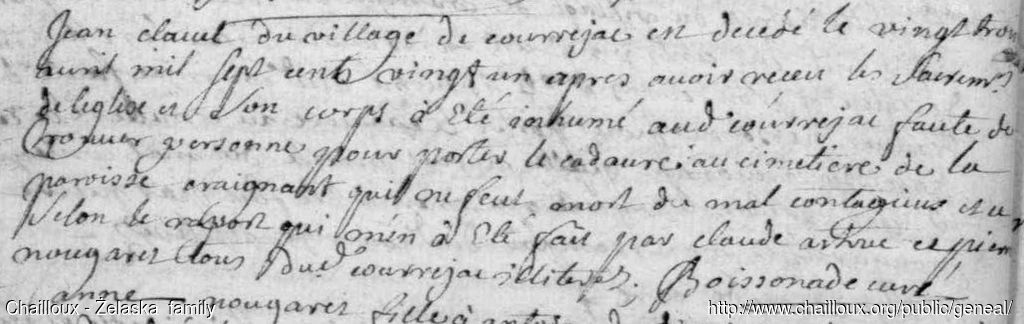 Jean clauel du village de courrejac est decedé le vingt trois
auril mil sept cents vingt un apres auoir receu les Sacremts
de leglise et Son corps à Eté inhumé aud courrejac faute de
trouuer personne pour porter le cadaure au cimetiere de la
paroisse craignant quil ne feut mort du mal contagieux et a
Selon le raport qui m'en à Eté fait par claude et pierre
nougaret tous dud. courrejac illiteres. Boissonade curé
anne nougaret fille à
Chailloux - Żelaska family
http://www.chailloux.org/public/geneal/